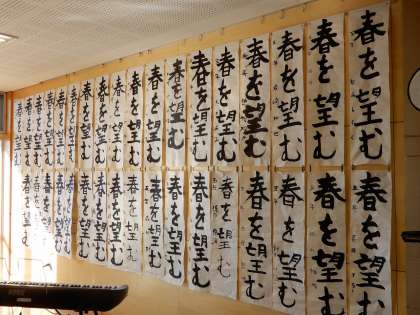 春を望む
春を望む
春を望む
春を望む
春を望む
春を望む
春を望む
春を望む
春を望む
春を望む
春を望む
春を望む
春を望む
春を望む
春を望む
春を望む
春を望む
春を望む
春を望む
春を望む
春を望む
春を望む
春を望む
春を望む
春を望む
春を望む
春を望む
春を望む
春を望む
春を望む
春を望む
春を望む